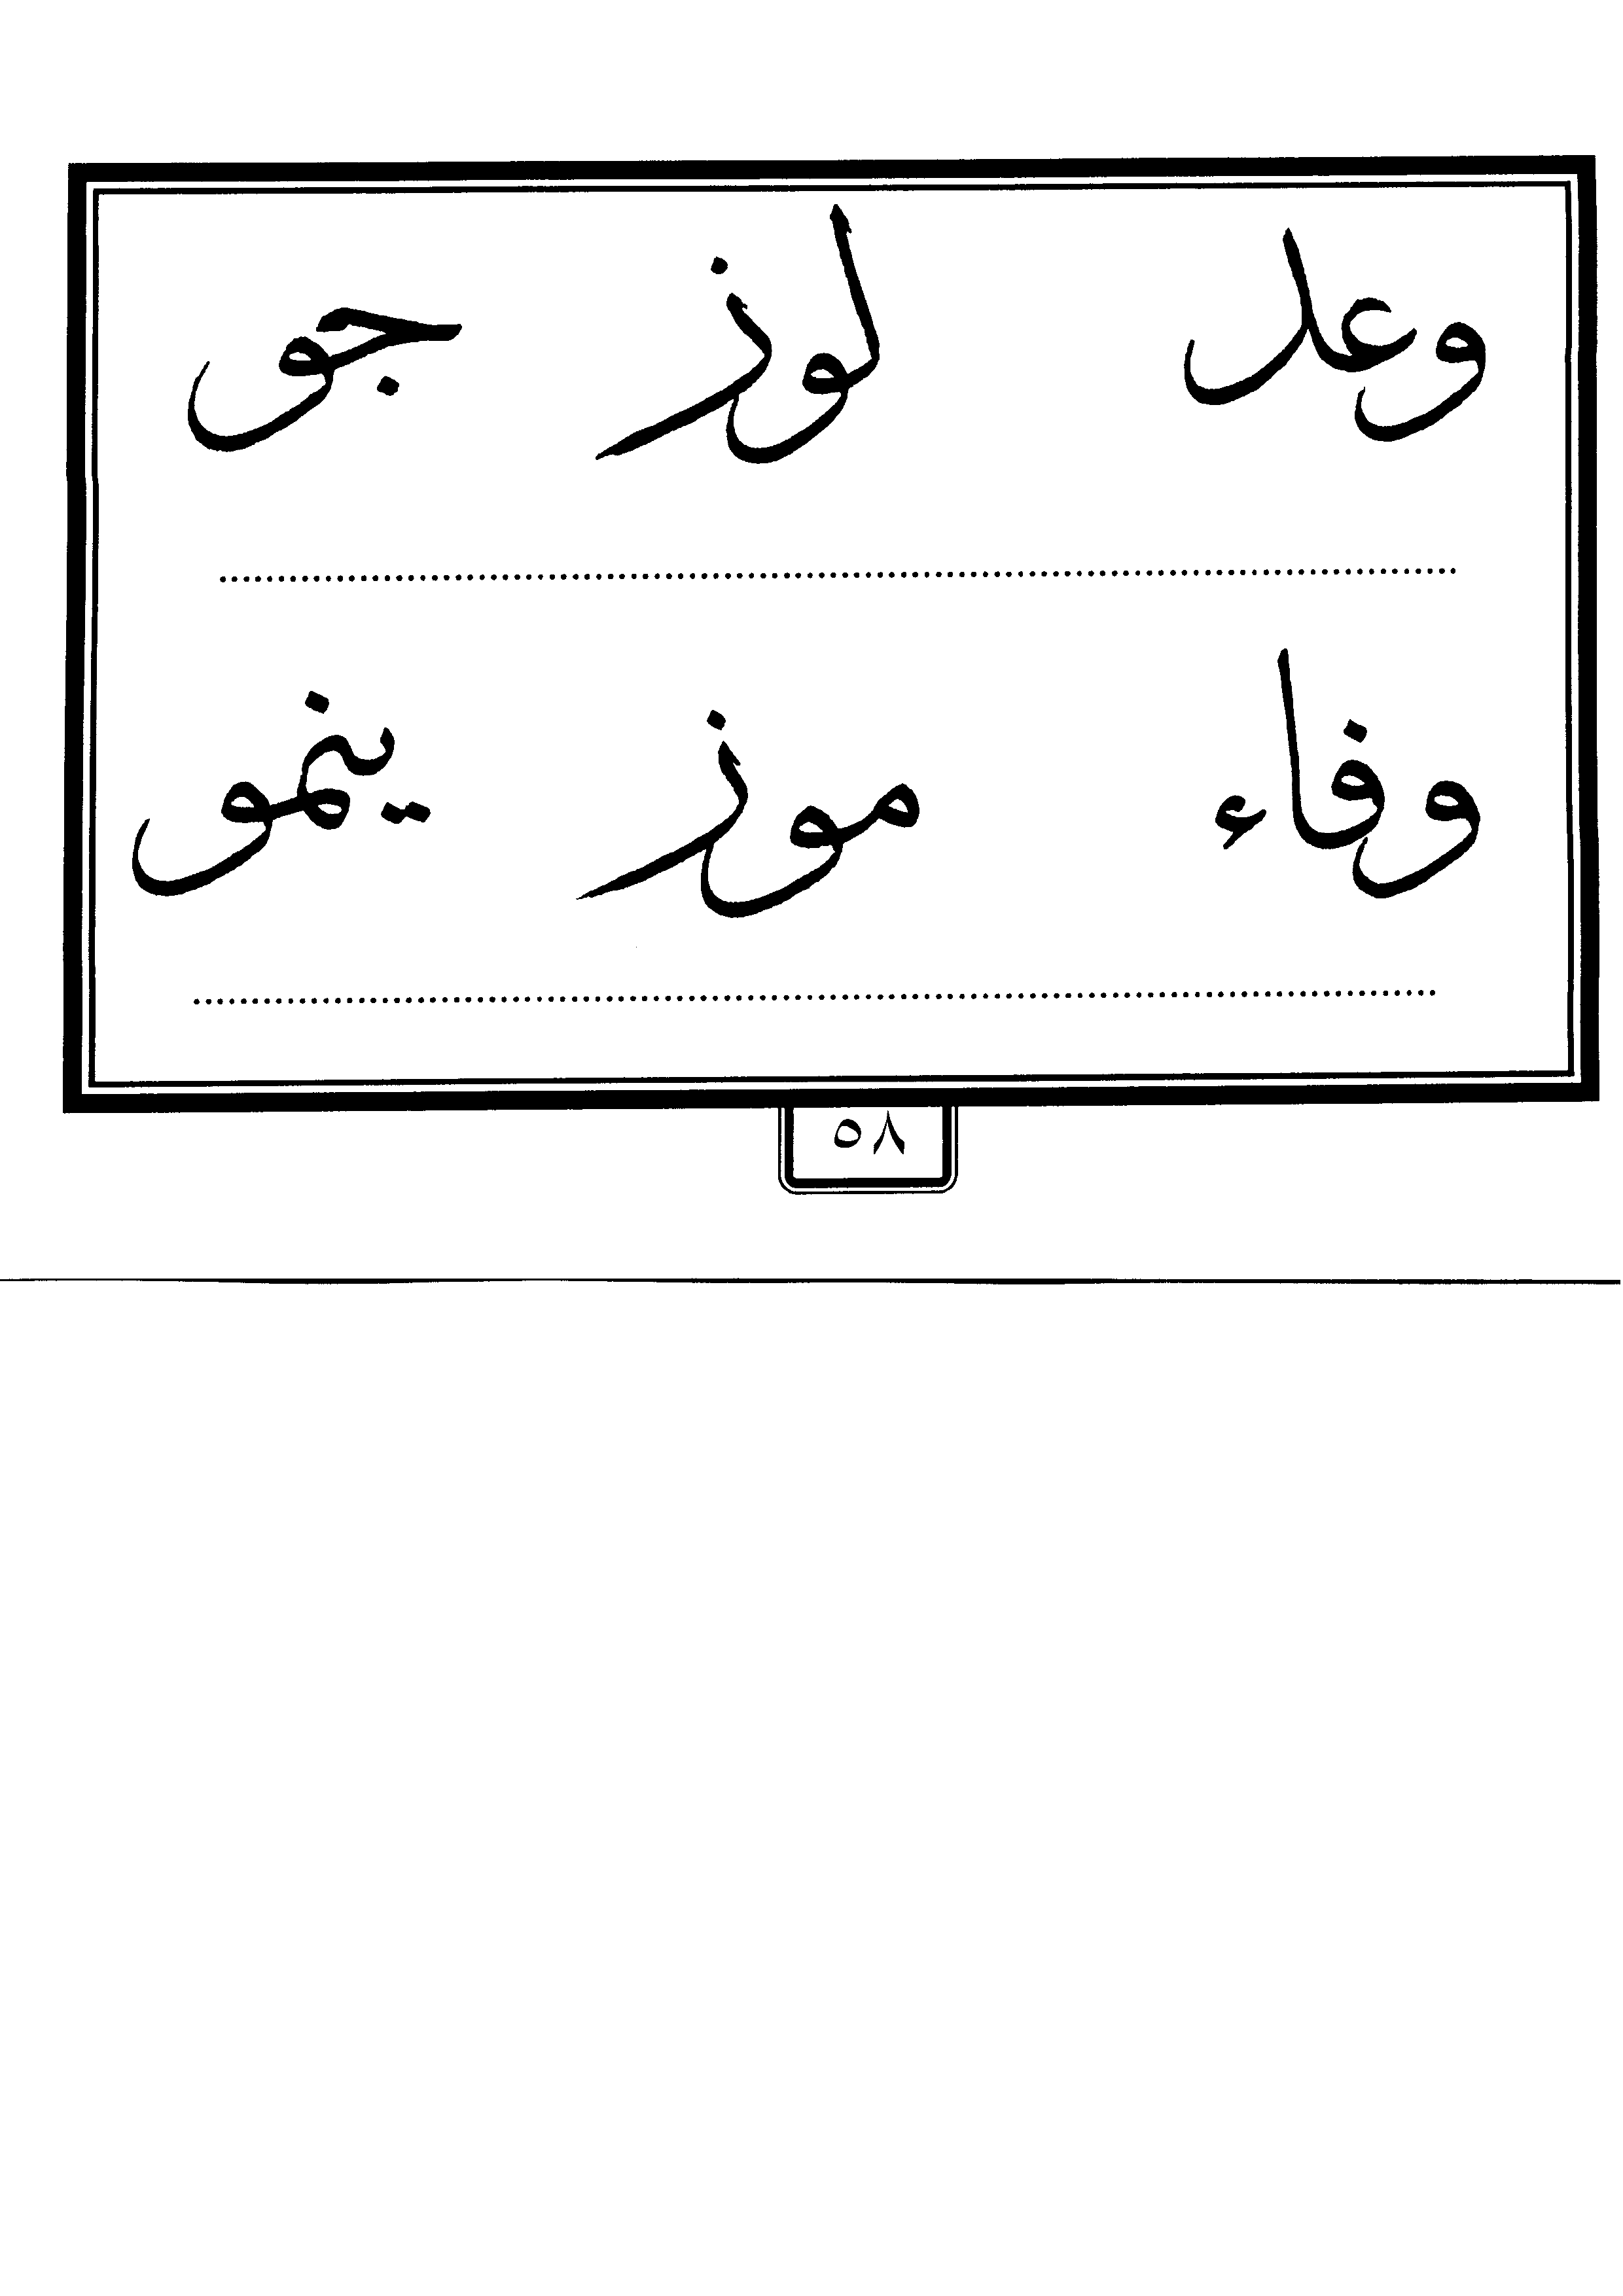 وعد لوز جو
وفاء موز ينمو
٥٨